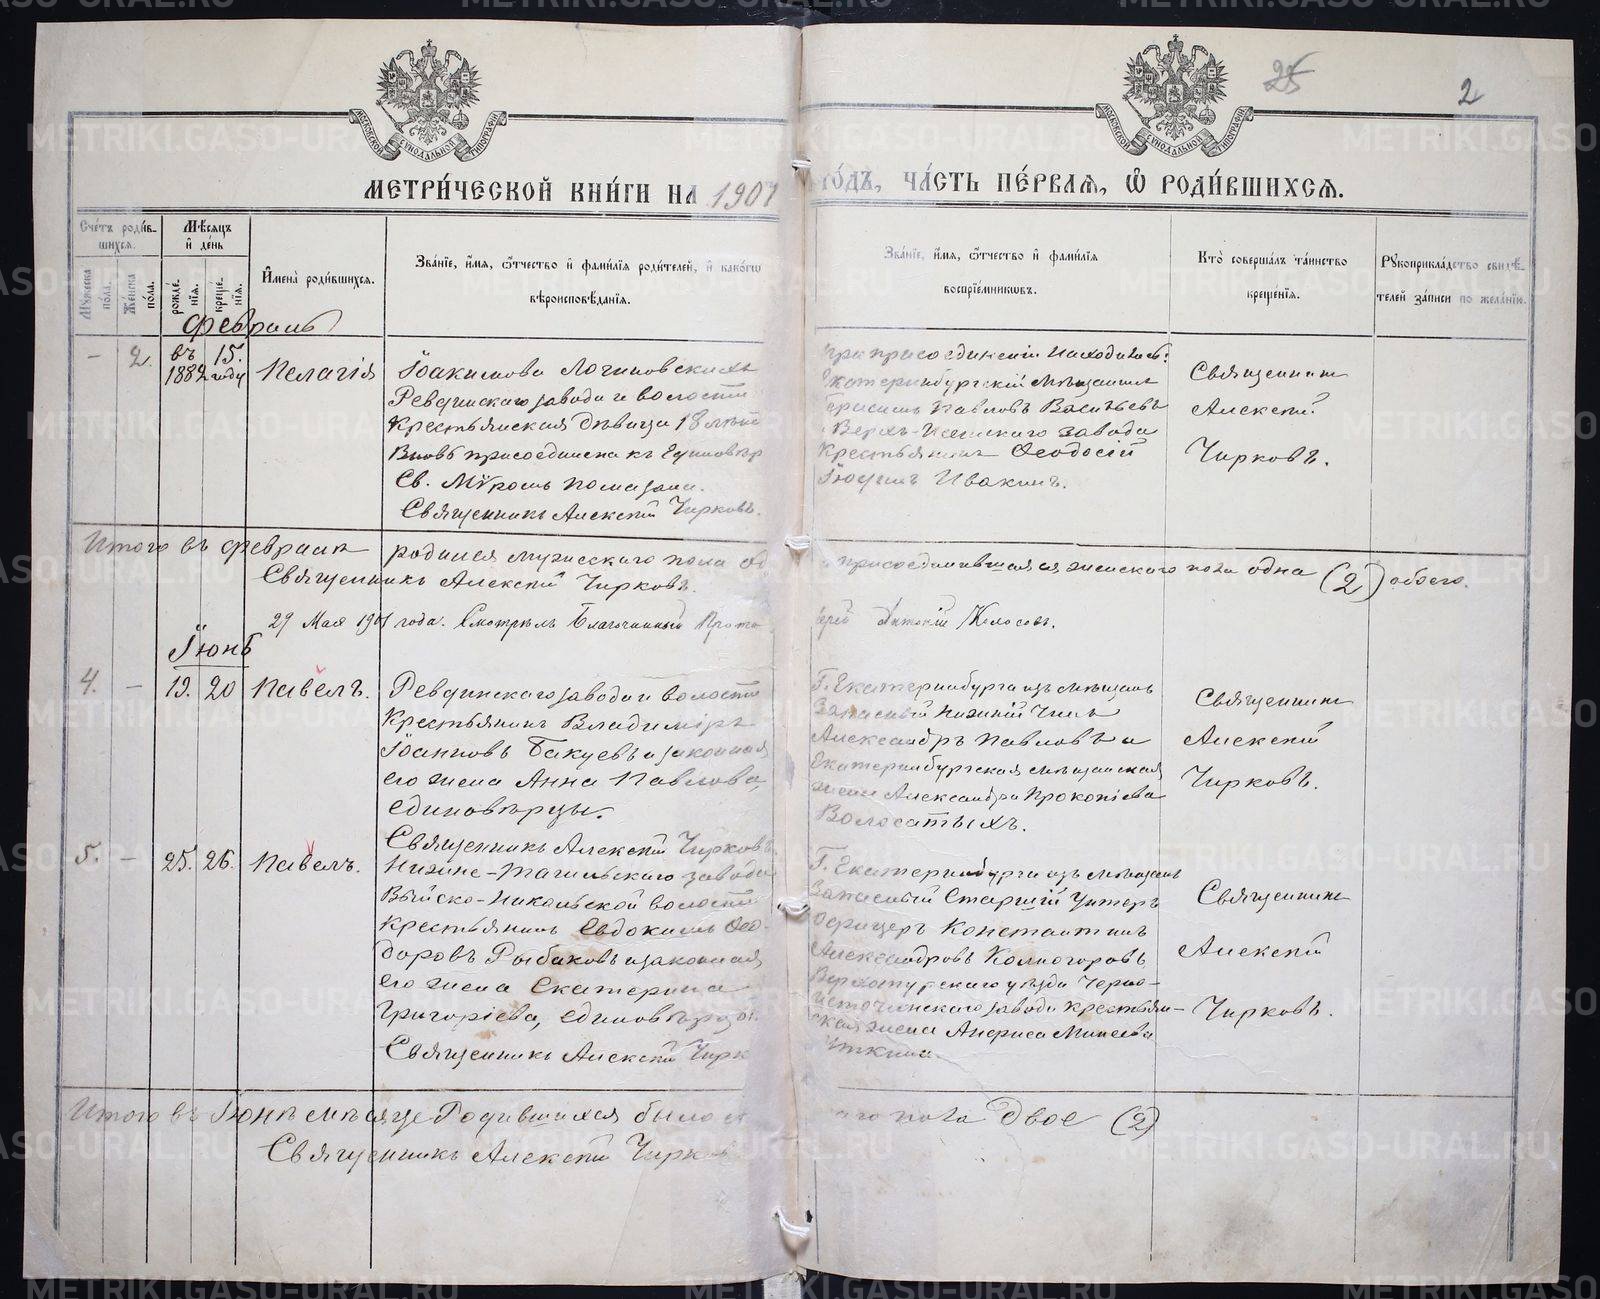 25
2
МОСКОВСКОЙ СѴНОДАЛЬНОЙ ТИПОГРАФІИ
МОСКОВСКОЙ СѴНОДАЛЬНОЙ ТИПОГРАФІИ
МЕТРИ́ЧЕСКОЙ КНИ́ГИ НА 1901 ГО́ДЪ, ЧА́СТЬ ПЕ́РВАѦ, Ѿ РОДИ́ВШИХСѦ.
Счетъ роди́вшихсѧ.
Мꙋжеска по́ла.
Же́нска по́ла.
Мѣ́сѧцъ и҆ де́нь
рожде́нїѧ.
креще́нїѧ.
И҆мена̀ роди́вшихсѧ.
Зва́нїе, и҆́мѧ, ѻ҆́тчество и҆ фами́лїѧ роди́телей, и҆ како́гѡ
вѣроисповѣ́данїѧ.
Зва́нїе, и҆́мѧ, ѻ҆́тчество и҆ фами́лїѧ
воспрїе́мникѡвъ.
Кто̀ соверша́лъ та́инство
креще́нїѧ.
Рꙋкоприкла́дство свидѣ́-
телей за́писи по жела́нїю.
Февраль
– 2. въ 1882 году 15. Пелагія
Іоакимова Логиновскихъ
Ревдинскаго завода и волости
Крестьянская дѣвица 18 лѣтъ
Вновь присоединена къ Единовѣр
Св. Мѵромъ помазана.
Священникъ Алексій Чирковъ.
При присоединеніи находились:
Екатеринбургскій мѣщанинъ
Герасимъ Павловъ Васильевъ
Верхъ-Исетскаго завода
Крестьянинъ Ѳеодосій
Ивакинъ.
Священникъ
Алексій
Чирковъ.
Итого въ февралѣ родился мужескаго пола од и присоединившаяся женскаго пола одна (2) обоего.
Священникъ Алексій Чирковъ.
29 Мая 1901 года. Смотрѣлъ Благочинный Прото ерей Колосовъ.
Іюнь
4. – 19. 20 Павелъ.
Ревдинскаго завода и волости
Крестьянинъ Владиміръ
Іоанновъ Бакуевъ и законная
его жена Анна Павлова,
единовѣрцы.
Священникъ Алексій Чирковъ
Г. Екатеринбурга изъ мѣщанъ
Запасный нижній чинъ
Александръ Павловъ и
Екатеринбургская мѣщанская
жена Александра Прокопіева
Волосатыхъ.
Священникъ
Алексій
Чирковъ.
5. – 25. 26. Павелъ.
Нижне-Тагильскаго завода
Выйско-Никольской волости
крестьянинъ Евдокимъ Ѳео-
доровъ Рыбаковъ и законная
его жена Екатерина
Григоріева, единовѣрцы.
Священникъ Алексій Чирк
Г. Екатеринбурга изъ мѣщанъ
Запасный Старшій Унтеръ
офицеръ Константинъ
Александровъ Колмогоровъ
Верхотурскаго уѣзда Черно-
источинскаго завода Крестьян-
ская жена Анфиса Минеева
Уткина.
Священникъ
Алексій
Чирковъ.
Итого въ Іюнѣ мѣсяце Родившихся было м аго пола двое (2)
Священникъ Алексій Чирков
METRIKI.GASO-URAL.RU